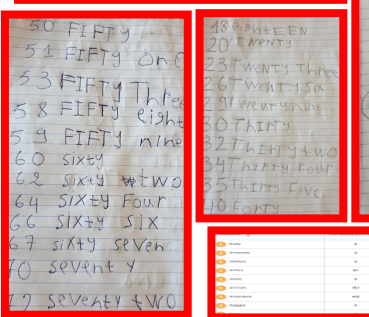 50 FIFTY
51 FIFTY one
53 FIFTY Three
58 FIFTY eight
59 FIFTY nine
60 sixty
62 sixty two
64 sixty Four
66 sixty six
67 sixty seven
70 seventy
72 seventy two
18 eighTEEN
20 TWENTY
23 TWenty Three
26 TWenty Six
29 Twenty nine
30 Thirty
32 Thirty two
34 Thirty Four
35 Thirty Five
40 Forty